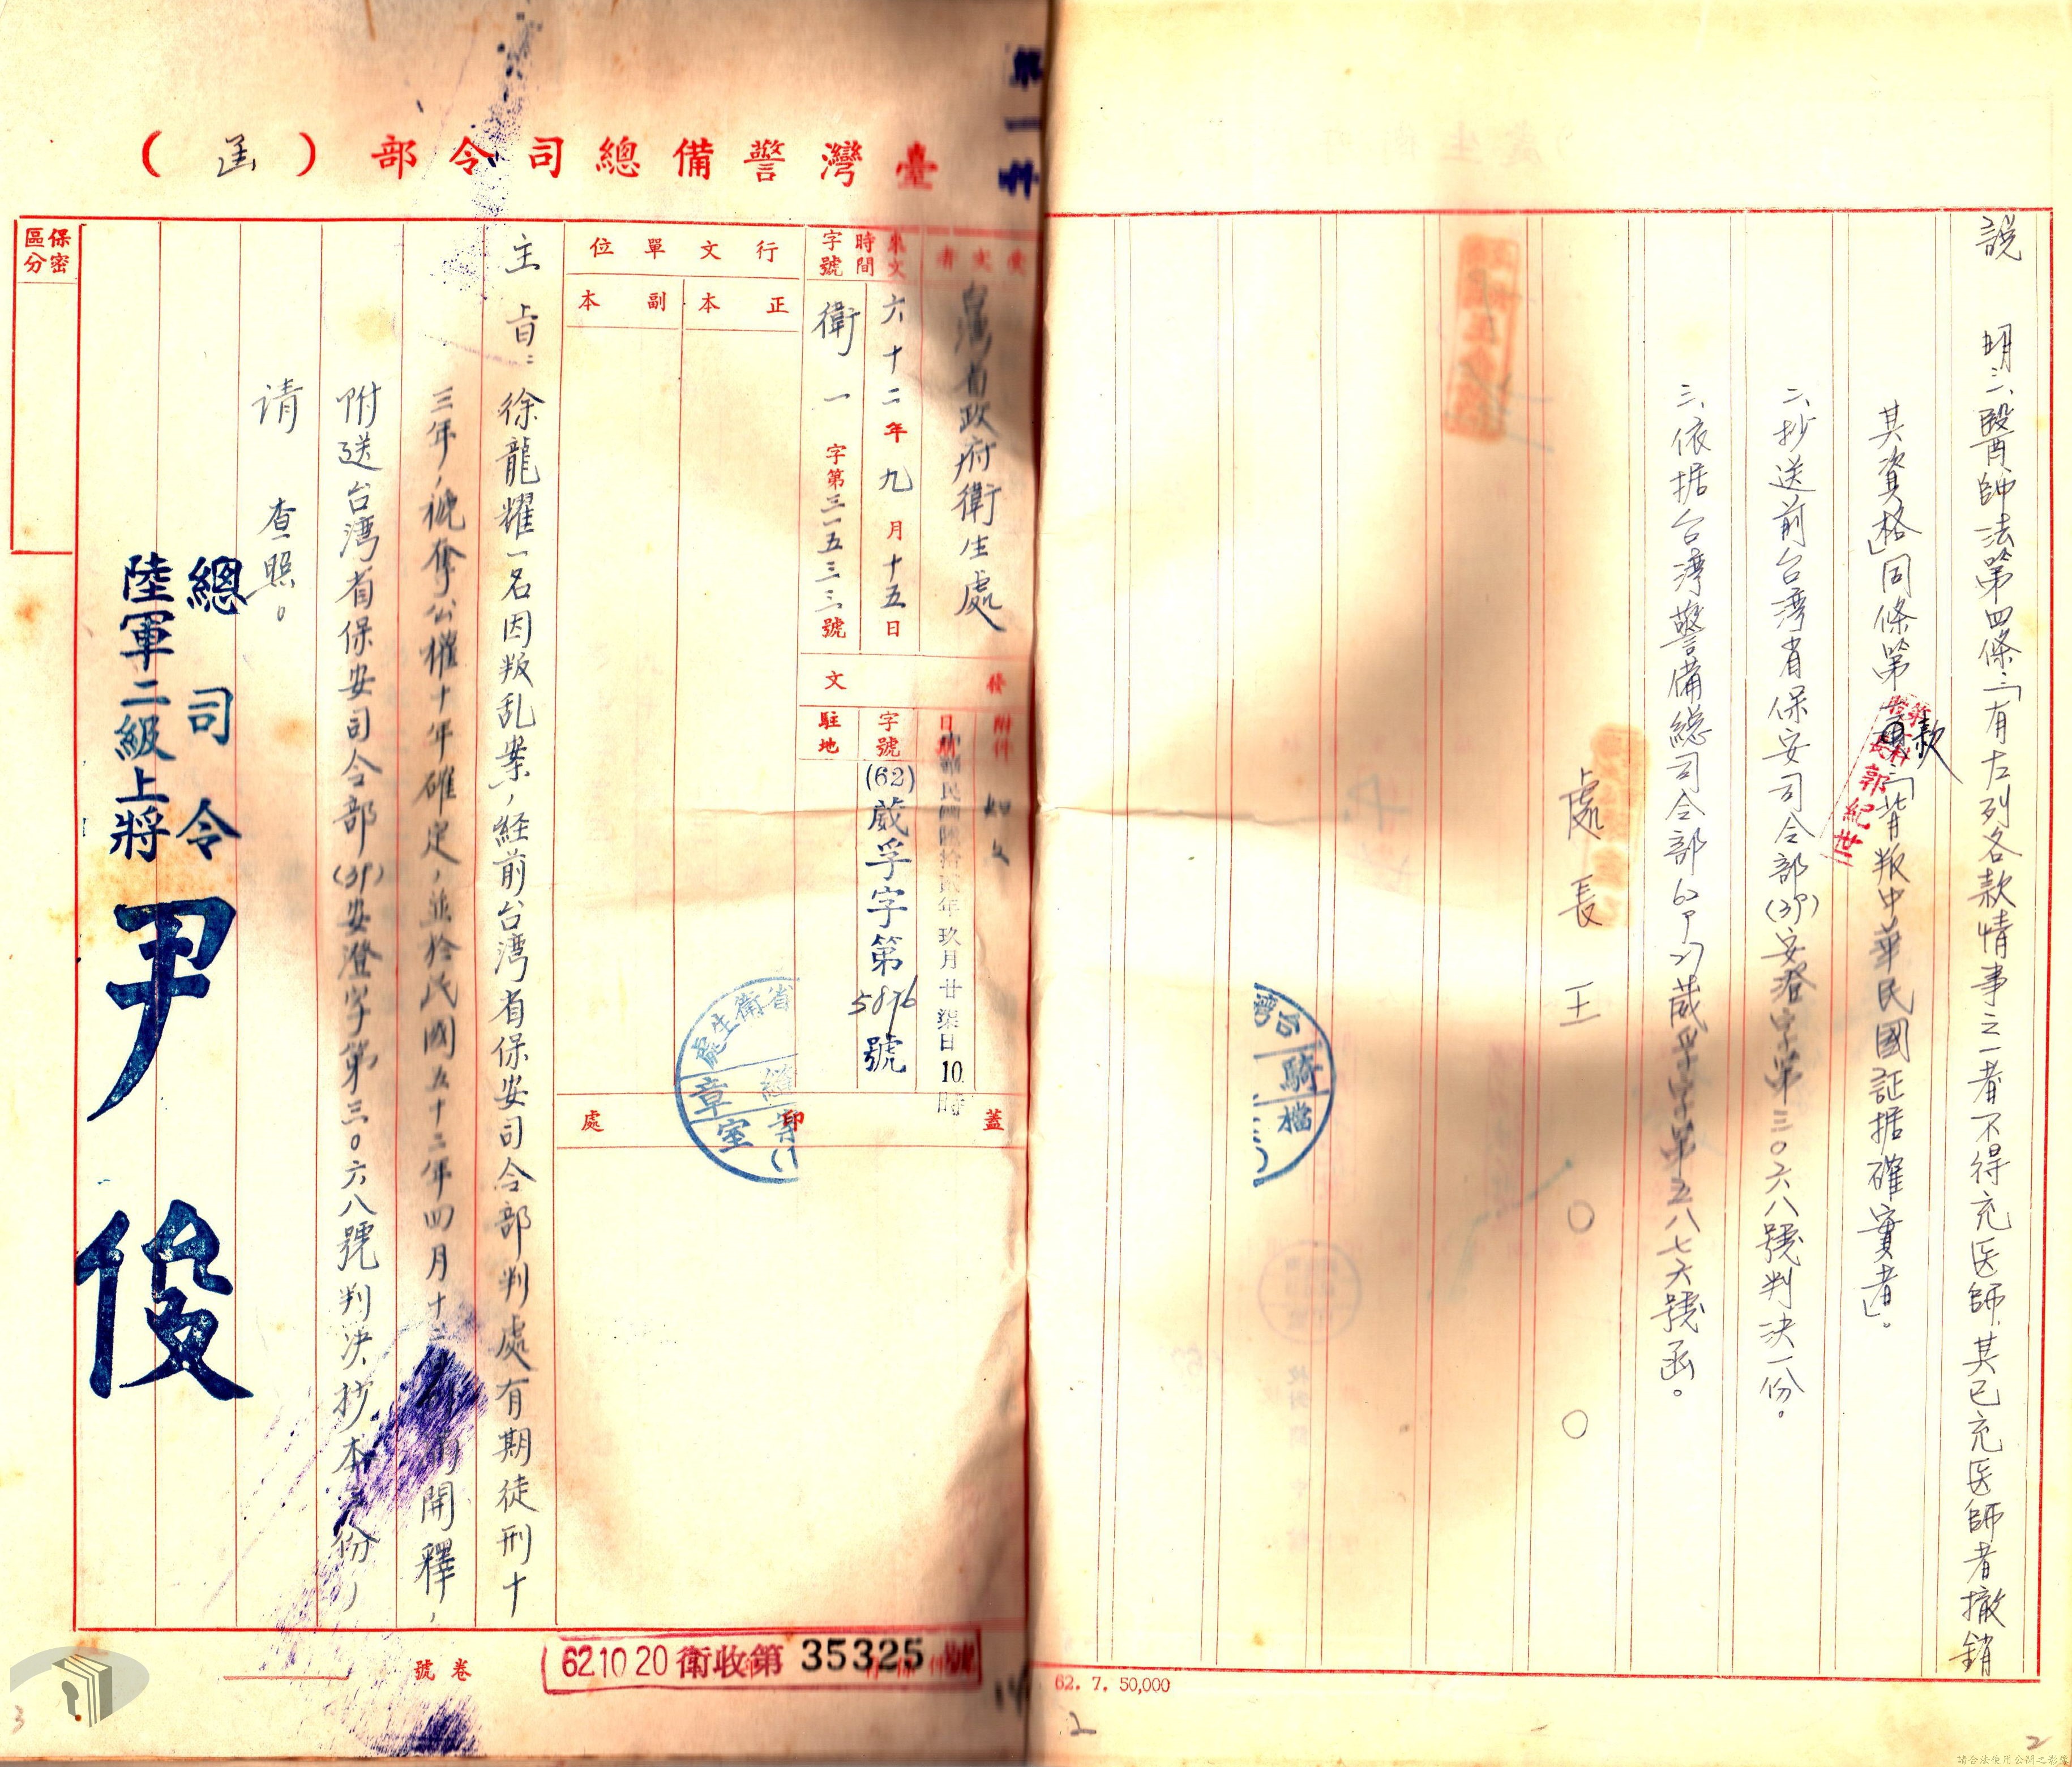 說　明：一、醫師法第四條：「有左列各款情事之一者不得充医師，其已充医師者撤銷
其資格」同條第一款：「背叛中華民國証据確實者」。
郭紀世
二、抄送前台湾省保安司令部(39)安澄字第三〇六八號判決一份。
三、依据台湾警備總司令部62927葳孚字第五八七六號函。
處長 王 ○ ○
台灣 騎 檔
62. 7. 50,000
2
2
第一件
臺灣警備總司令部（函）
保密區分
受文者
台灣省政府衛生處
來文 時間 字號
六十二年九月十五日
衛一字第三一五三三號
發文
附件 如文
日期 中華民國陸拾貳年玖月廿柒日10時
字號 (62)葳孚字第5876號
駐地
行文單位
正本
副本
蓋印處
省衛生處 縫章 室
主旨：徐龍耀一名因叛乱案，経前台湾省保安司令部判處有期徒刑十
三年，褫奪公權十年確定，並於民國五十二年四月十二開釋，
附送台湾省保安司令部(39)安澄字第三〇六八號判决抄本份，
请 查照。
總司令
陸軍二級上將 尹俊
卷號
62.10.20 衛收第 35325 號
3
請合法使用公開之影像